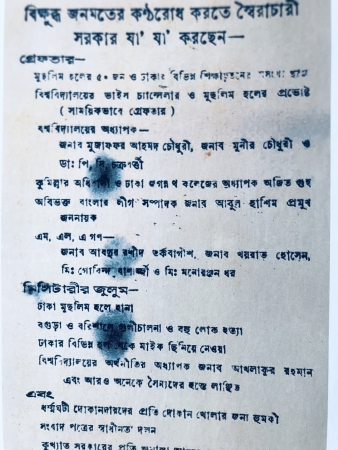 বিক্ষুব্ধ জনমতের কণ্ঠরোধ করতে স্বৈরাচারী
সরকার যা' যা' করছেন—
গ্রেফতার—
মুছলিম হলের ৫০ জন ও ঢাকার বিভিন্ন শিক্ষায়তনের ছাত্র
বিশ্ববিদ্যালয়ের ভাইস চ্যান্সেলার ও মুছলিম হলের প্রভোষ্ট
( সাময়িকভাবে গ্রেফতার )
বিশ্ববিদ্যালয়ের অধ্যাপক—
জনাব মুজাফফর আহমদ চৌধুরী, জনাব মুনীর চৌধুরী ও
ডাঃ পি, সি, চক্রবর্ত্তী
কুমিল্লার ও ঢাকা জগন্নাথ কলেজের অধ্যাপক অজিত গুহ
অবিভক্ত বাংলার লীগ সম্পাদক জনাব আবুল হাশিম প্রমুখ
জননায়ক
এম, এল, এ গণ—
জনাব আবদুর রশীদ তর্কবাগীশ, জনাব খয়রাত হোসেন,
মিঃ গোবিন্দ ও মিঃ মনোরঞ্জন ধর
মিলিটারীর জুলুম—
ঢাকা মুছলিম হলে হানা
বগুড়া ও বরিশালে গুলীচালনা ও বহু লোক হত্যা
ঢাকার বিভিন্ন হল থেকে মাইক ছিনিয়ে নেওয়া
বিশ্ববিদ্যালয়ের অর্থনীতির অধ্যাপক জনাব আখলাকুর রহমান
এবং আরও অনেকে সৈন্যদের হস্তে লাঞ্ছিত
এবং
ধর্ম্মঘটী দোকানদারদের প্রতি দোকান খোলার জন্য হুমকী
সংবাদ পত্রের স্বাধীনতা দলন
কুখ্যাত সরকারের প্রতি